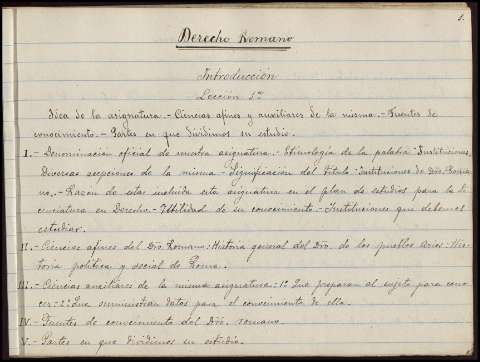 1.
Derecho Romano
Introducción
Lección 1ª
Idea de la asignatura.- Ciencias afines y auxiliares de la misma.- Fuentes de
conocimiento.- Partes en que dividimos su estudio.
I.- Denominación oficial de nuestra asignatura.- Etimología de la palabra "Instituciones.
Diversas acepciones de la misma.- Significación del título "Instituciones de Dro. Roma-
no.- Razón de estar incluida esta asignatura en el plan de estudios para la li-
cenciatura en Derecho.- Utilidad de su conocimiento.- Instituciones que debemos
estudiar.
II.- Ciencias afines del Dro. Romano: Historia general del Dro. de los pueblos arios: His-
toria política y social de Roma.
III.- Ciencias auxiliares de la misma asignatura: 1º Que preparan al sujeto para cono-
cer: 2º Que suministran datos para el conocimiento de ella.
IV.- Fuentes de conocimiento del Dro. romano
V.- Partes en que dividimos su estudio.